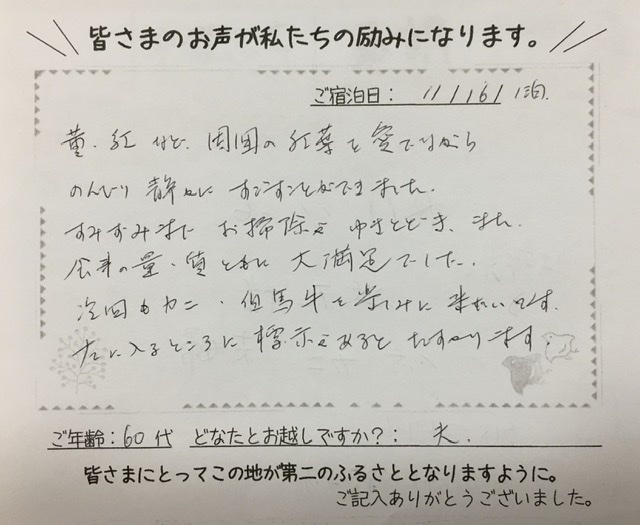 皆さまのお声が私たちの励みになります。
ご宿泊日: 11/16/ 1泊.
黄、紅 など、周囲の紅葉を愛でながら
のんびり 静かに すごすことができました。
すみずみまで お掃除も ゆきとどき、また、
食事の量・質ともに 大満足でした。
次回もカニ・但馬牛を楽しみに 来たいです。
左に入るところに 標示があると たすかります。
ご年齢:60代 どなたとお越しですか?: 夫.
皆さまにとってこの地が第二のふるさととなりますように。
ご記入ありがとうございました。